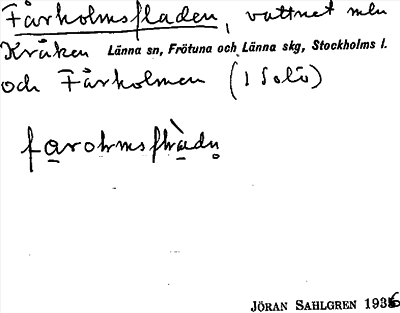 Fårholmsfladen, vattnet mln
Kråken Länna sn, Frötuna och Länna skg, Stockholms l.
och Fårholmen (i Solö)
JÖRAN SAHLGREN 1936